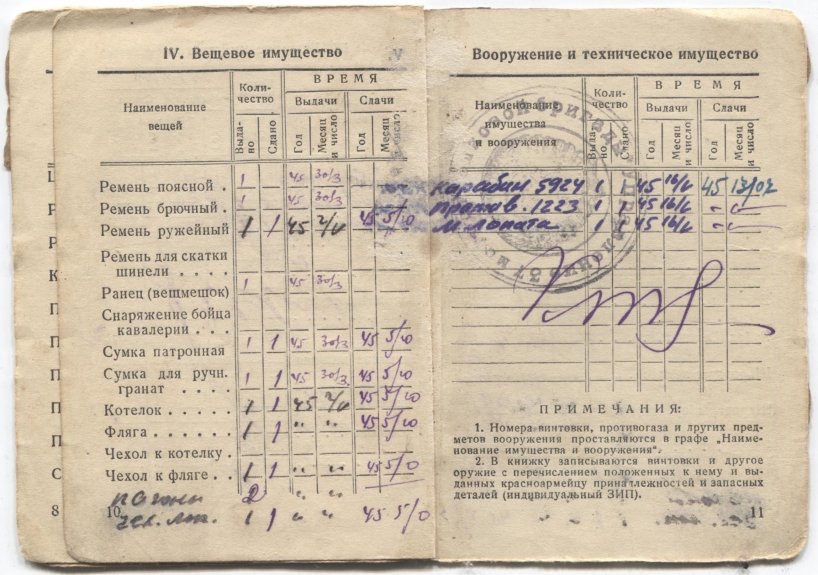 IV. Вещевое имущество
Наименование вещей
Коли-
чество
ВРЕМЯ
Выдачи
Сдачи
Выда-
но
Сдано
Год
Месяц
и число
Год
Месяц
и число
Ремень поясной . 1 45 30/3
Ремень брючный . 1 45 30/3
Ремень ружейный 1 1 45 45 5/10
Ремень для скатки
шинели . . . .
Ранец (вещмешок) 1 45 30/3
Снаряжение бойца
кавалерии . . . .
Сумка патронная 1 1 45 30/3 45 5/10
Сумка для ручн.
гранат . . . . 1 1 45 30/3 45 5/10
Котелок . . . . . 1 1 45 45 5/10
Фляга . . . . . . 1 1 " " 45 5/10
Чехол к котелку .
Чехол к фляге . . . 1 1 " " 45 5/10
погоны 2 " "
чех. лоп. 1 1 " " 45 5/10
8
10
Вооружение и техническое имущество
Наименование
имущества
и вооружения
Коли-
чество
ВРЕМЯ
Выдачи
Сдачи
Выда-
но
Сдано
Год
Месяц
и число
Год
Месяц
и число
карабин 5924 1 1 45 45
против. 1223 1 1 45
м. лопата 1 1 45
ПРИМЕЧАНИЯ:
1. Номера винтовки, противогаза и других пред-
метов вооружения проставляются в графе „Наиме-
нование имущества и вооружения".
2. В книжку записываются винтовки и другое
оружие с перечислением положенных к нему и вы-
данных красноармейцу принадлежностей и запасных
деталей (индивидуальный ЗИП).
11